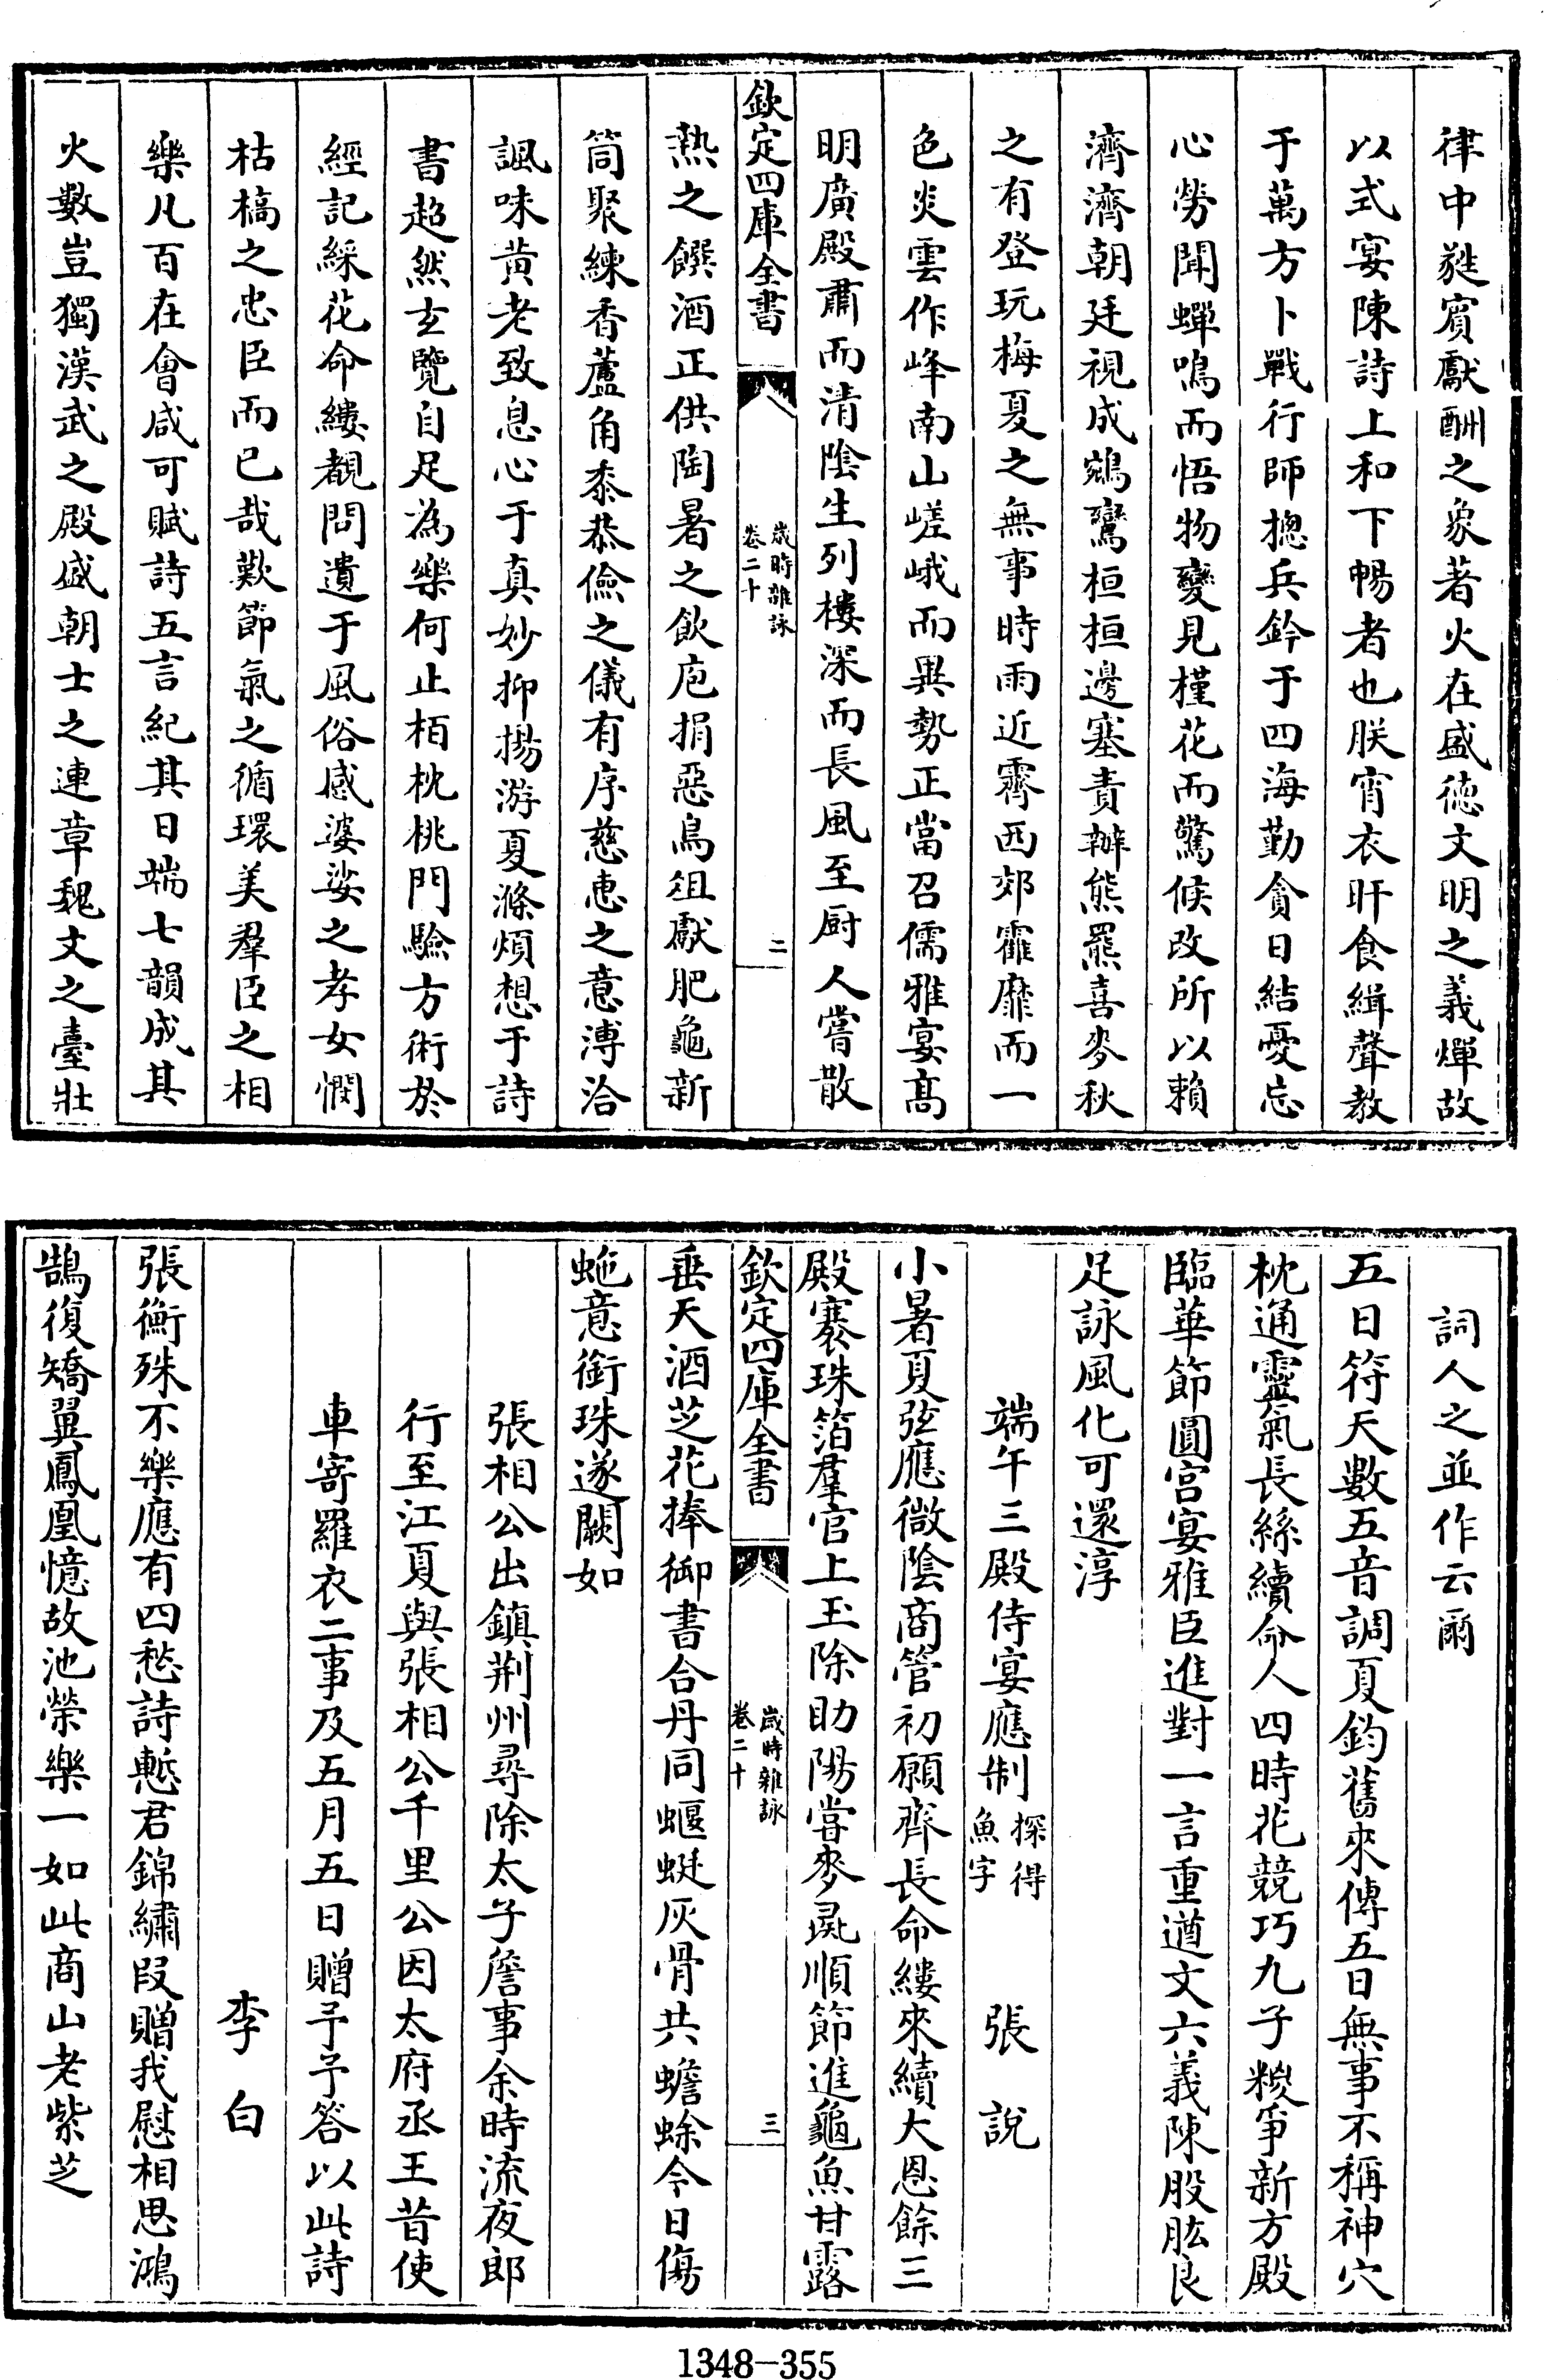 律中蕤賔獻酬之象著火在盛徳文明之義煇故
以式宴陳詩上和下暢者也朕宵衣旰食緝聲教
于萬方卜戰行師摠兵鈐于四海勤貪日結憂忘
心勞聞蟬鳴而悟物變見槿花而驚候改所以賴
濟濟朝廷視成鵷鸞桓桓邊塞責辦熊羆喜麥秋
之有登玩梅夏之無事時雨近霽西郊霍靡而一
色炎雲作峰南山嵯峨而異勢正當召儒雅宴髙
明廣殿肅而清隂生列樓深而長風至厨人嘗散
欽定四庫全書
嵗時雜詠
卷二十
二
熱之饌酒正供陶暑之飲庖捐惡鳥俎獻肥龜新
筒聚練香蘆角黍恭儉之儀有序慈恵之意溥洽
諷味黄老致息心于真妙抑揚游夏滌煩想于詩
書超然玄覽自足為樂何止栢枕桃門驗方術於
經記綵花命縷覩問遺于風俗感婆娑之孝女憫
枯槁之忠臣而已哉歎節氣之循環美羣臣之相
樂凡百在會咸可賦詩五言紀其日端七韻成其
火數豈獨漢武之殿盛朝士之連章魏文之臺壯
詞人之並作云爾
五日符天數五音調夏鈞舊來傳五日無事不稱神穴
枕通靈氣長絲續命人四時花競巧九子糉爭新方殿
臨華節圓宫宴雅臣進對一言重遒文六義陳股肱良
足詠風化可還淳
端午三殿侍宴應制探得魚字　張說
小暑夏弦應微隂商管初願齊長命縷來續大恩餘三
殿褰珠箔羣官上玉除助陽嘗麥彘順節進龜魚甘露
欽定四庫全書
嵗時雜詠
卷二十
三
垂天酒芝花捧御書合丹同蝘蜓灰骨共蟾蜍今日傷
虵意銜珠遂闕如
張相公出鎮荆州尋除太子詹事余時流夜郎
行至江夏與張相公千里公因太府丞王昔使
車寄羅衣二事及五月五日贈予予答以此詩
李白
張衡殊不樂應有四愁詩慙君錦繡段贈我慰相思鴻
鵠復矯翼鳳凰憶故池榮樂一如此商山老紫芝
1348-355